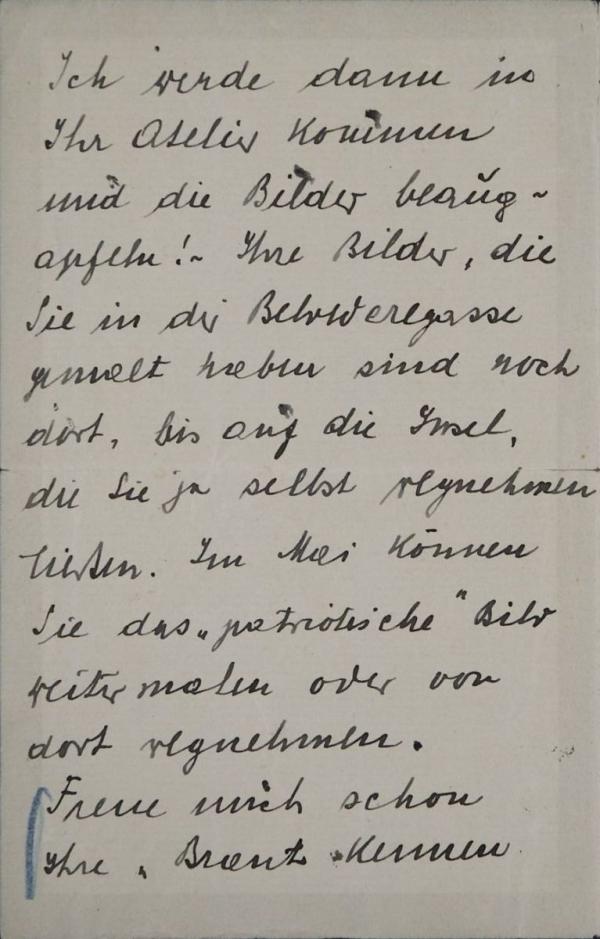 Ich werde dann in
Ihr Atelier kommen
und die Bilder beaug-
apfeln! - Ihre Bilder, die
Sie in der Belvederegasse
gemalt haben sind noch
dort, bis auf die Insel,
die Sie ja selbst wegnehmen
ließen. Im Mai können
Sie das „patriotische" Bild
weiter malen oder von
dort wegnehmen.
Freue mich schon
Ihre „Braut" kennen